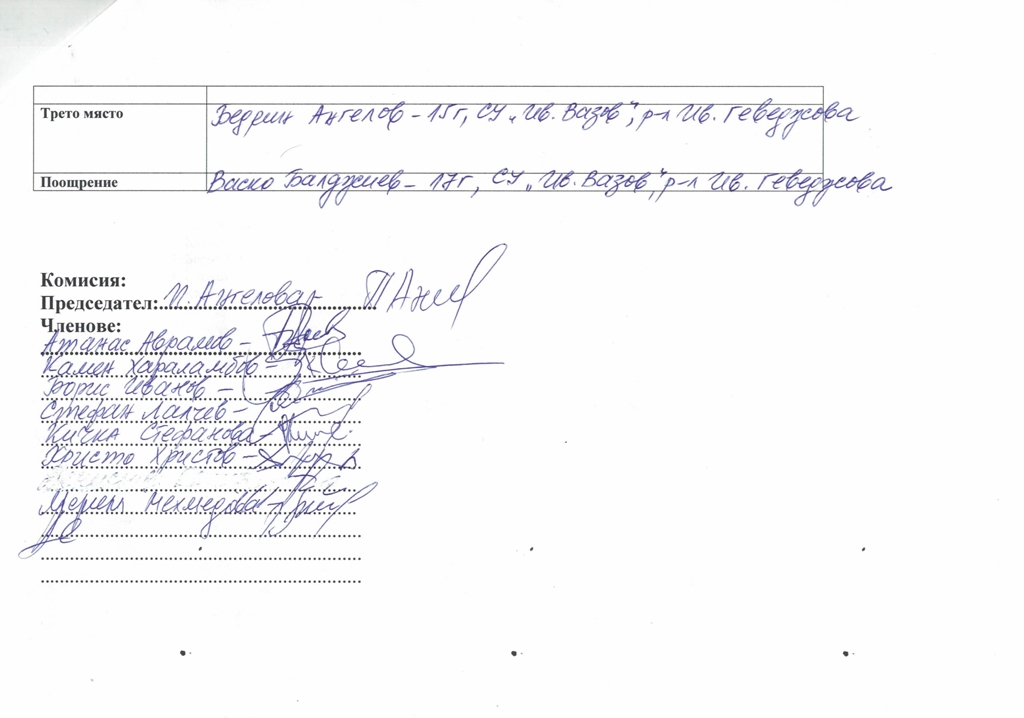 Трето място Бедрин Ангелов - 15г, СУ „Ив. Вазов", р-л Ив. Геведжова
Поощрение Васко Балджиев - 17г, СУ „Ив. Вазов", р-л Ив. Геведжова
Комисия:
Председател: П. Ангелова
Членове:
Атанас Аврамов -
Камен Хараламбов -
Борис Иванов -
Стефан Лалчев -
Кичка Стефанова -
Христо Христов -
Мехмедова -